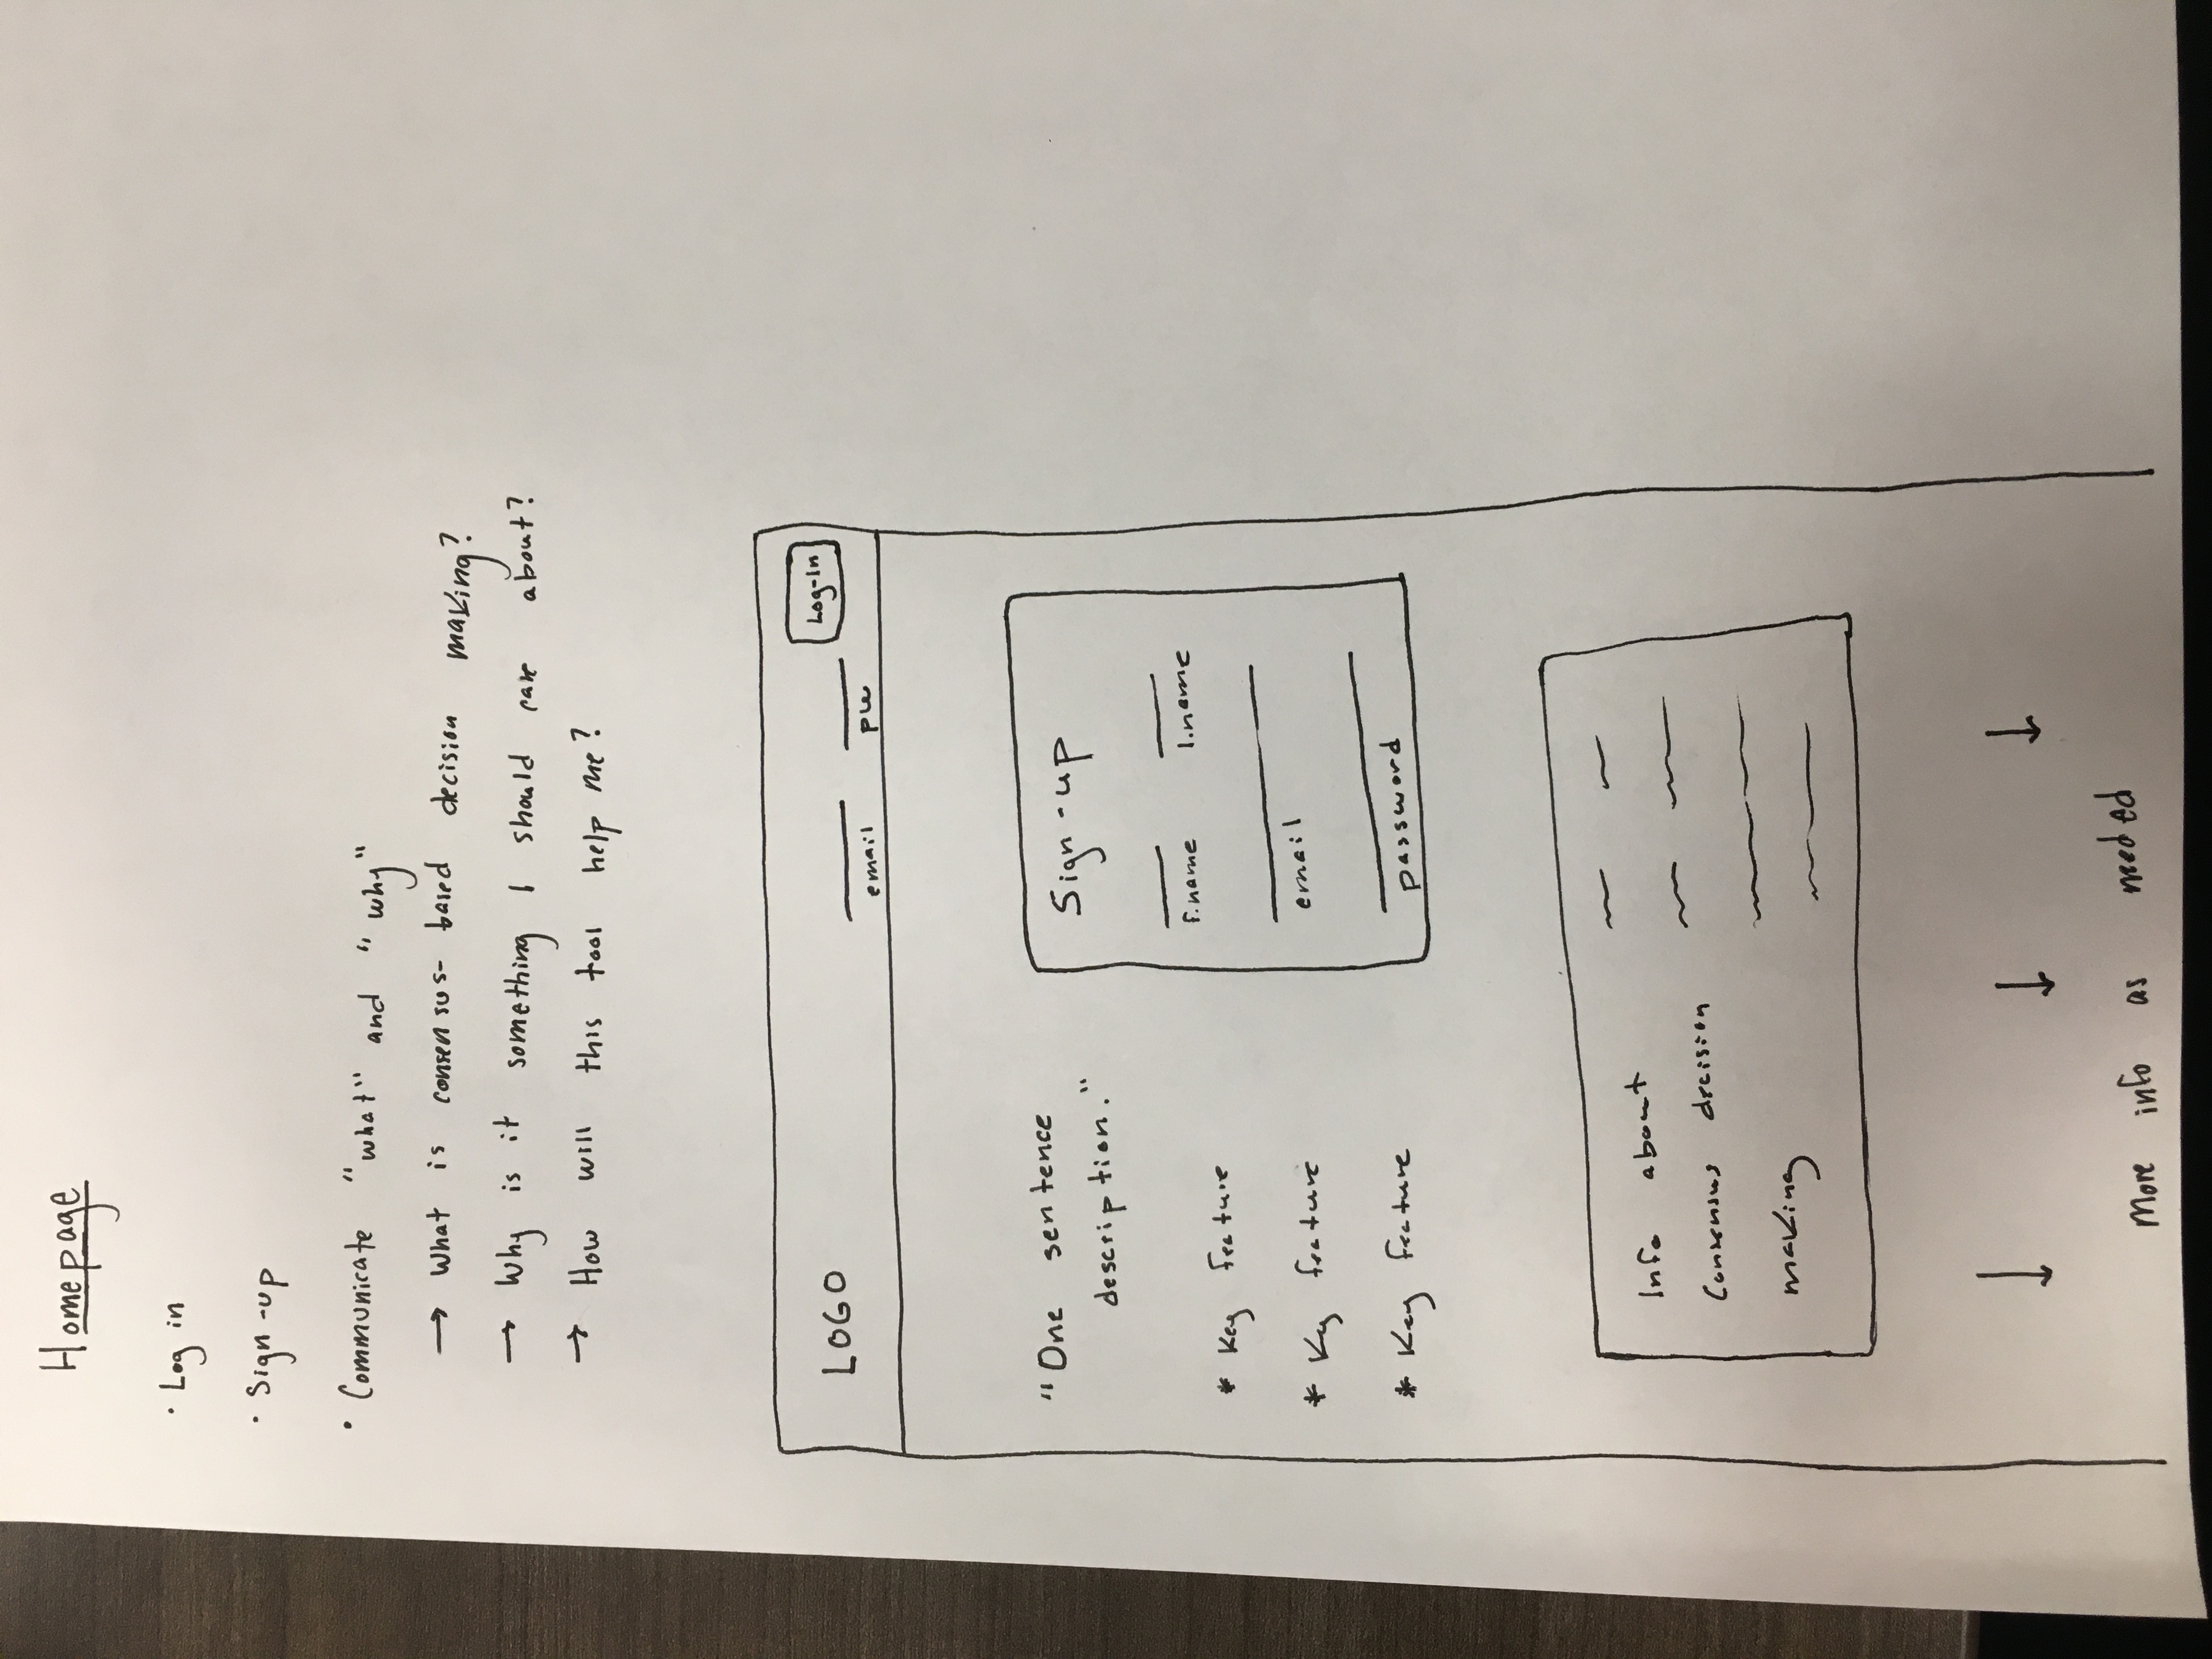 Homepage
• Log in
• Sign-up
• Communicate "what" and "why"
→ What is consensus-based decision making?
→ Why is it something I should care about?
→ How will this tool help me?
LOGO
email pw Log-In
"One sentence
description."
* Key feature
* Key feature
* Key feature
Sign-up
f.name l.name
email
password
Info about
Consensus decision
making
↓ ↓ ↓
More info as needed